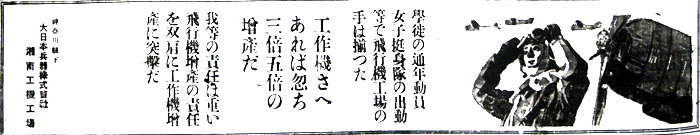 學徒の通年動員
女子挺身隊の出動
等で飛行機工場の
手は揃つた
工作機さへ
あれば忽ち
三倍五倍の
增產だ
我等の責任は重い
飛行機增產の責任
を双肩に工作機增
產に突擊だ
神奈川縣下
大日本兵器株式會社
湘南工機工場